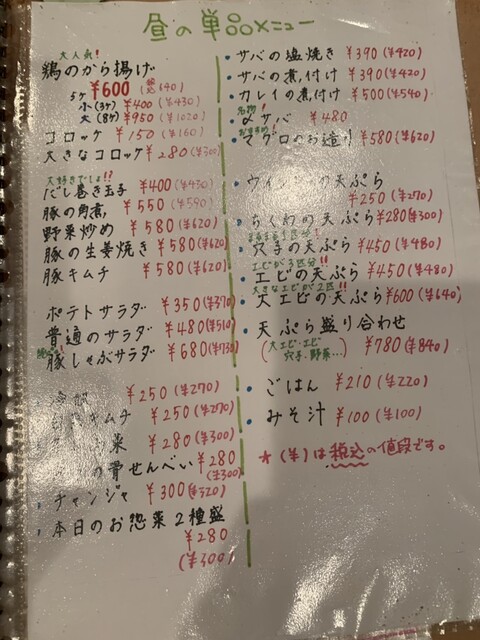 昼の単品メニュー
大人気!
鶏のから揚げ
5ヶ ¥600 (税込640)
小(3ケ) ¥400 (¥430)
大(8ヶ) ¥950 (¥1020)
コロッケ ¥150 (¥160)
大きなコロッケ ¥280 (¥300
大好きでしょ!!
だし巻き玉子 ¥400 (¥430)
豚の角煮 ¥550 (¥590)
野菜炒め ¥580 (¥620)
豚の生姜焼き ¥580 (¥620)
豚キムチ ¥580 (¥620)
ポテトサラダ ¥350 (¥370)
普通のサラダ ¥480 (¥510)
豚しゃぶサラダ ¥680 (¥730)
¥250 (¥270)
キムチ ¥250 (¥270)
菜 ¥280 (¥300)
の骨せんべい ¥280
(¥300)
チャンジャ ¥300 (¥320)
本日のお惣菜2種盛
¥280
(¥300)
サバの塩焼き ¥390 (¥420)
サバの煮付け ¥390 (¥420)
カレイの煮付け ¥500 (¥540)
名物!
〆サバ ¥480
おすすめ!
マグロのお造り ¥580 (¥620)
ウインナーの天ぷら
¥250 (¥270)
ちくわの天ぷら ¥280 (¥300)
まるまる1匹分!
穴子の天ぷら ¥450 (¥480)
エビが3匹分!!
エビの天ぷら ¥450 (¥480)
大きなエビが2匹!!
大エビの天ぷら ¥600 (¥640)
天ぷら盛り合わせ
(大エビ・エビ ¥780 (¥840)
穴子・野菜…)
ごはん ¥210 (¥220)
みそ汁 ¥100 (¥100)
* (¥)は税込の値段です。